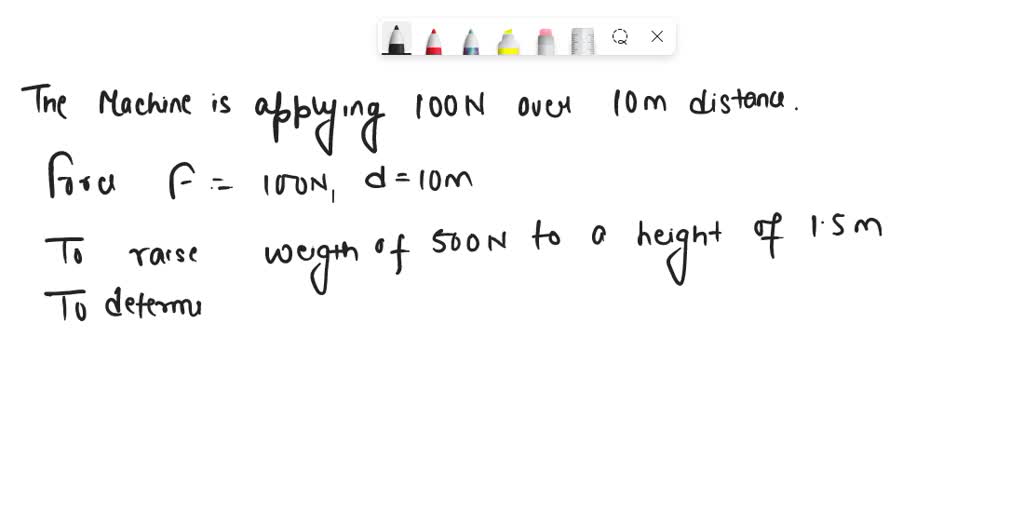 The Machine is applying 100N over 10m distance.
Force F = 100N, d = 10m
To raise weigth of 500N to a height of 1.5m
To determi